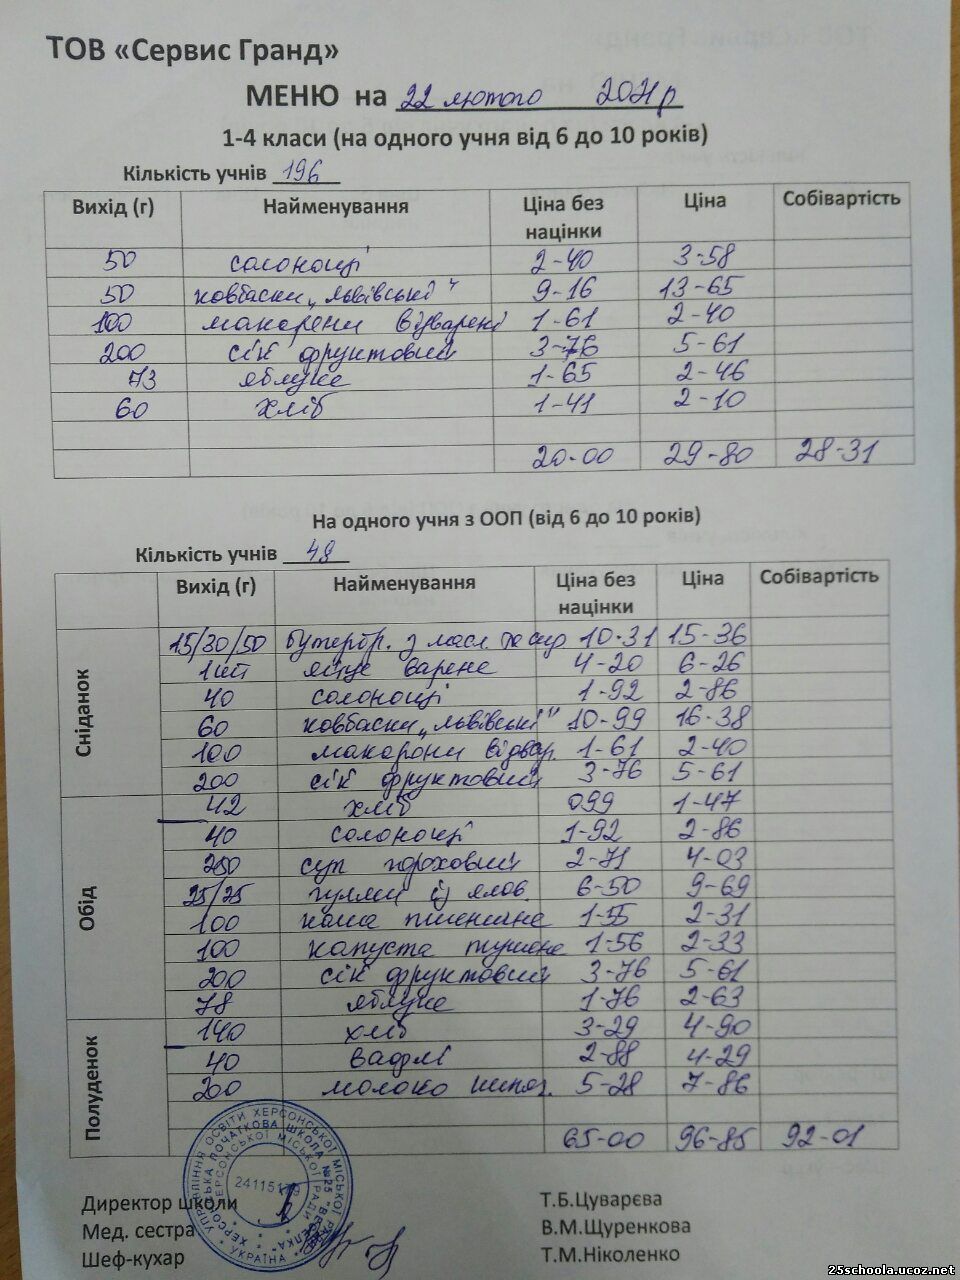 ТОВ «Сервис Гранд»
МЕНЮ на 22 лютого 2021р
1-4 класи (на одного учня від 6 до 10 років)
Кількість учнів 196
Вихід (г) Найменування Ціна без націнки Ціна Собівартість
50 солонощі 2-40 3-58
50 ковбаски „львівські" 9-16 13-65
100 макарени відварені 1-61 2-40
200 сік фруктовий 3-76 5-61
73 яблуке 1-65 2-46
60 хліб 1-41 2-10
20-00 29-80 28-31
На одного учня з ООП (від 6 до 10 років)
Кількість учнів 49
Вихід (г) Найменування Ціна без націнки Ціна Собівартість
Сніданок
15/30/50 бутербр. з масл. та сир 10-31 15-36
1шт яйце варене 4-20 6-26
40 солонощі 1-92 2-86
60 ковбаски „львівські" 10-99 16-38
100 макарони відвар. 1-61 2-40
200 сік фруктовий 3-76 5-61
42 хліб 099 1-47
Обід
40 солонощі 1-92 2-86
250 суп гороховий 2-71 4-03
25/25 гуляш із ялов. 6-50 9-69
100 каша пшенична 1-55 2-31
100 капуста тушене 1-56 2-33
200 сік фруктовий 3-76 5-61
78 яблуке 1-76 2-63
140 хліб 3-29 4-90
Полуденок
40 вафлі 2-88 4-29
200 молоко 5-28 7-86
65-00 96-85 92-01
Директор школи Т.Б.Цуварєва
Мед. сестра В.М.Щуренкова
Шеф-кухар Т.М.Ніколенко
УПРАВЛІННЯ ОСВІТИ ХЕРСОНСЬКОЇ МІСЬКОЇ
ПОЧАТКОВА ШКОЛА №25
ХЕРСОНСЬКОЇ МІСЬКОЇ РАДИ
УКРАЇНА
25schoola.ucoz.net